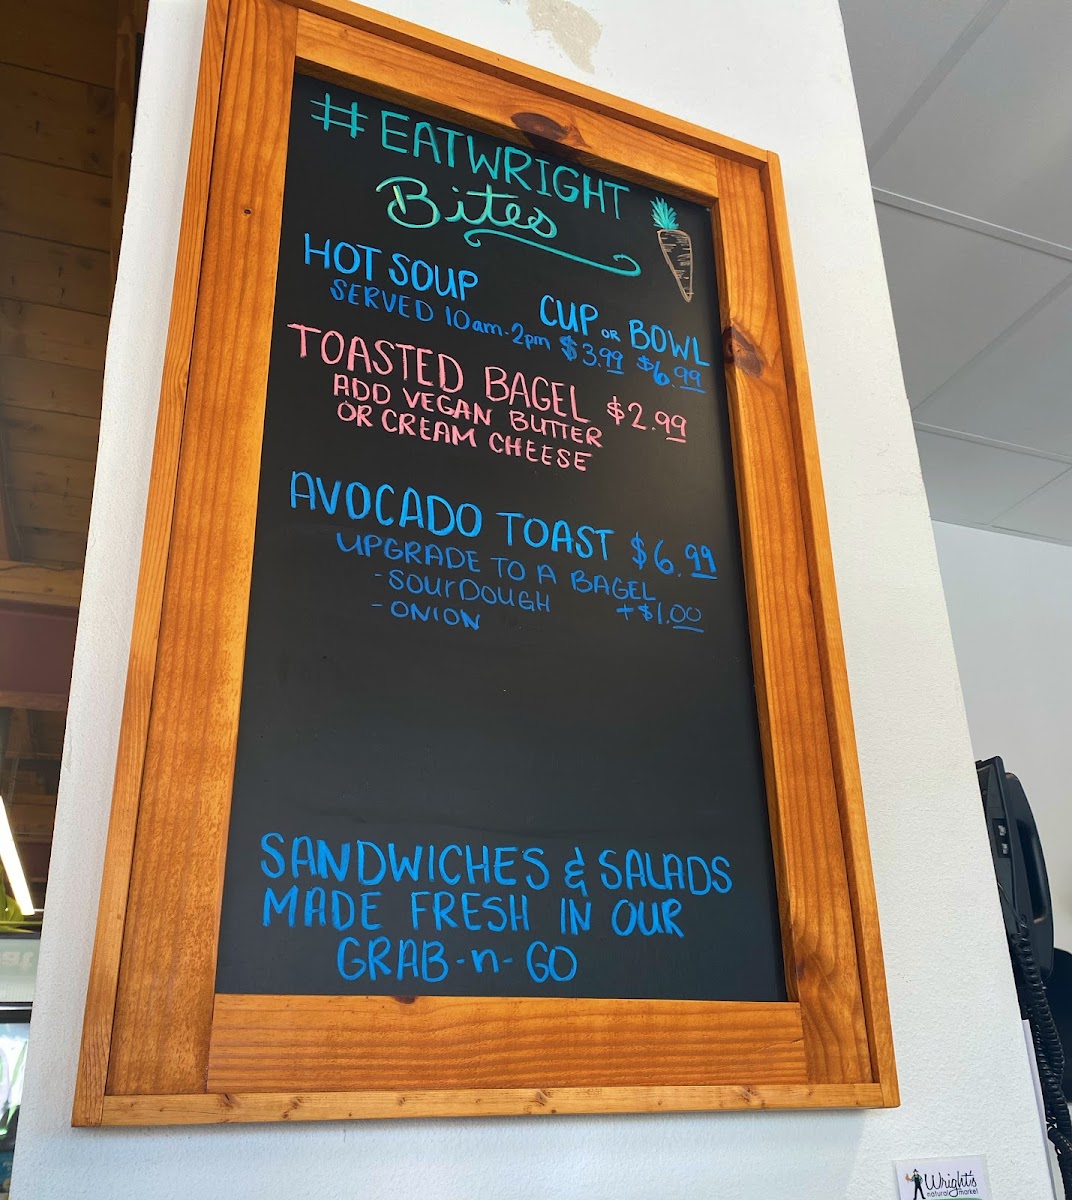 #EATWRIGHT
Bites
HOT SOUP CUP OR BOWL
SERVED 10am-2pm $3.99 $6.99
TOASTED BAGEL $2.99
ADD VEGAN BUTTER
OR CREAM CHEESE
AVOCADO TOAST $6.99
UPGRADE TO A BAGEL
-SOURDOUGH +$1.00
-ONION
SANDWICHES & SALADS
MADE FRESH IN OUR
GRAB-n-GO
Wright's
natural market